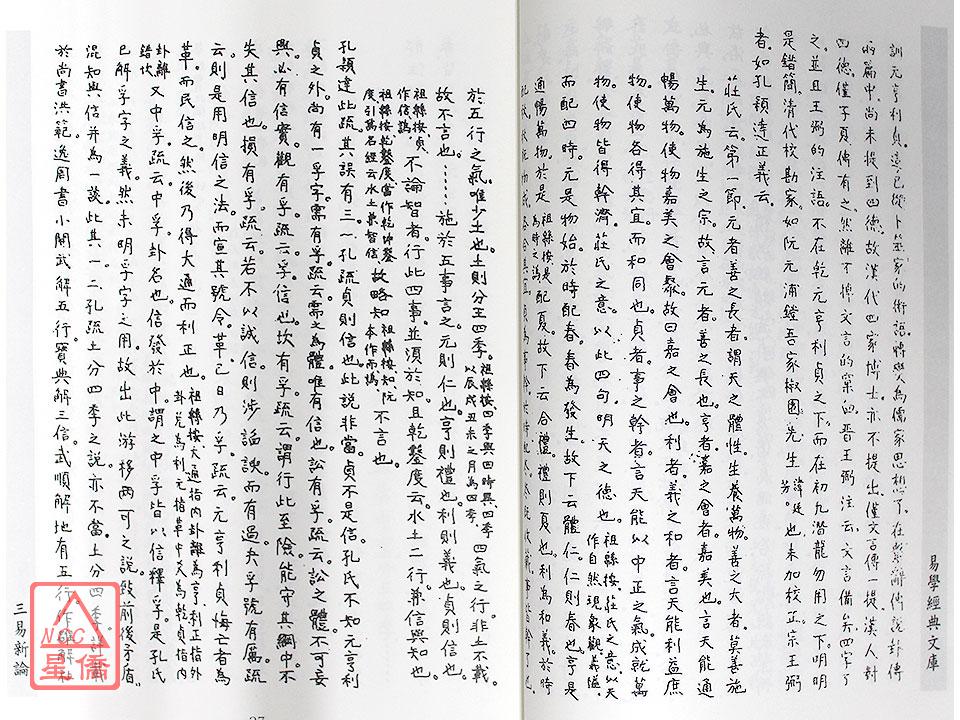 易學經典文庫
訓元亨利貞這已從卜筮家的術語將與人為儒家思想了在繫辭傳說卦傳
的篇中尚未提到四德故漢代四家博士亦不提出僅文言傳一提漢人對
四德僅子夏傳有之然離不擽文言的窠臼晋王弼注云文言備矣四字了
之並且王弼的注語不在乾元亨利貞之下而在初九潛龍勿用之下明明
是錯簡清代校勘家如阮元浦鏜吾家椒園先生諱廷芳也未加校正宗王弼
者如孔穎達正義云
莊氏云第一節元者善之長者謂天之體性生養萬物善之大者莫善施
生元為施生之宗故言元者善之長也亨者嘉之會者嘉美也言天能通
暢萬物使物嘉美之會聚故曰嘉之會也利者義之和者言天能利益庶
物使物各得其宜而和同也貞者事之幹者言天能以中正之氣成就萬
物使物皆得幹濟莊氏之意以此四句明天之德也祖緜按莊氏之意以天作自然現象觀義隘
而配四時元是物始於時配春春為發生故下云體仁仁則春也亨是
通暢萬物於是祖緜按是為時之譌配夏故下云合禮禮則夏也利為和義於時
於五行之氣唯少土也土則分王四季祖緜按四季與四時異四季以辰戌丑未之月為四季四氣之行非土不載
故不言也……施於五事言之元則仁也亨則禮也利則義也貞則信也
祖緜按貞作信譌不論智者行此四事並須於知且乾鑿度云水土二行兼信與知也
祖緜按乾鑿度當作乾坤鑿度引萬名經云水土兼智信故略知祖緜按知阮本作而譌不言也
孔穎達此疏其誤有三一孔疏貞則信也此說非當貞不是信孔氏不知元亨利
貞之外尚有一孚字需有孚疏云需之為體唯有信也訟有孚疏云訟之體不可妄
興必有信實觀有孚疏云孚信也坎有孚疏云謂行此至險能守其剛中不
失其信也損有孚疏云若不以誠信則涉諂諛而有過夬孚號有厲疏
云則是用明信之法而宣其號令革已日乃孚疏云元亨利貞悔亡者為
革而民信之然後乃得大通而利正也祖緜按大通指內卦離為亨利正指外卦兌為利元指革中爻為乾貞指內卦離錯坎
又中孚疏云中孚卦名也信發於中謂之中孚皆以信釋孚是孔氏
已解孚字之義然未明孚字之用故出此游移兩可之說致前後矛盾
混知與信并為一談此其一二孔疏土分四季之說亦不當土分四季
於尚書洪範逸周書小開武解五行寶典解三信武順解地有五行作雒解
三易新論
NCC
星僑